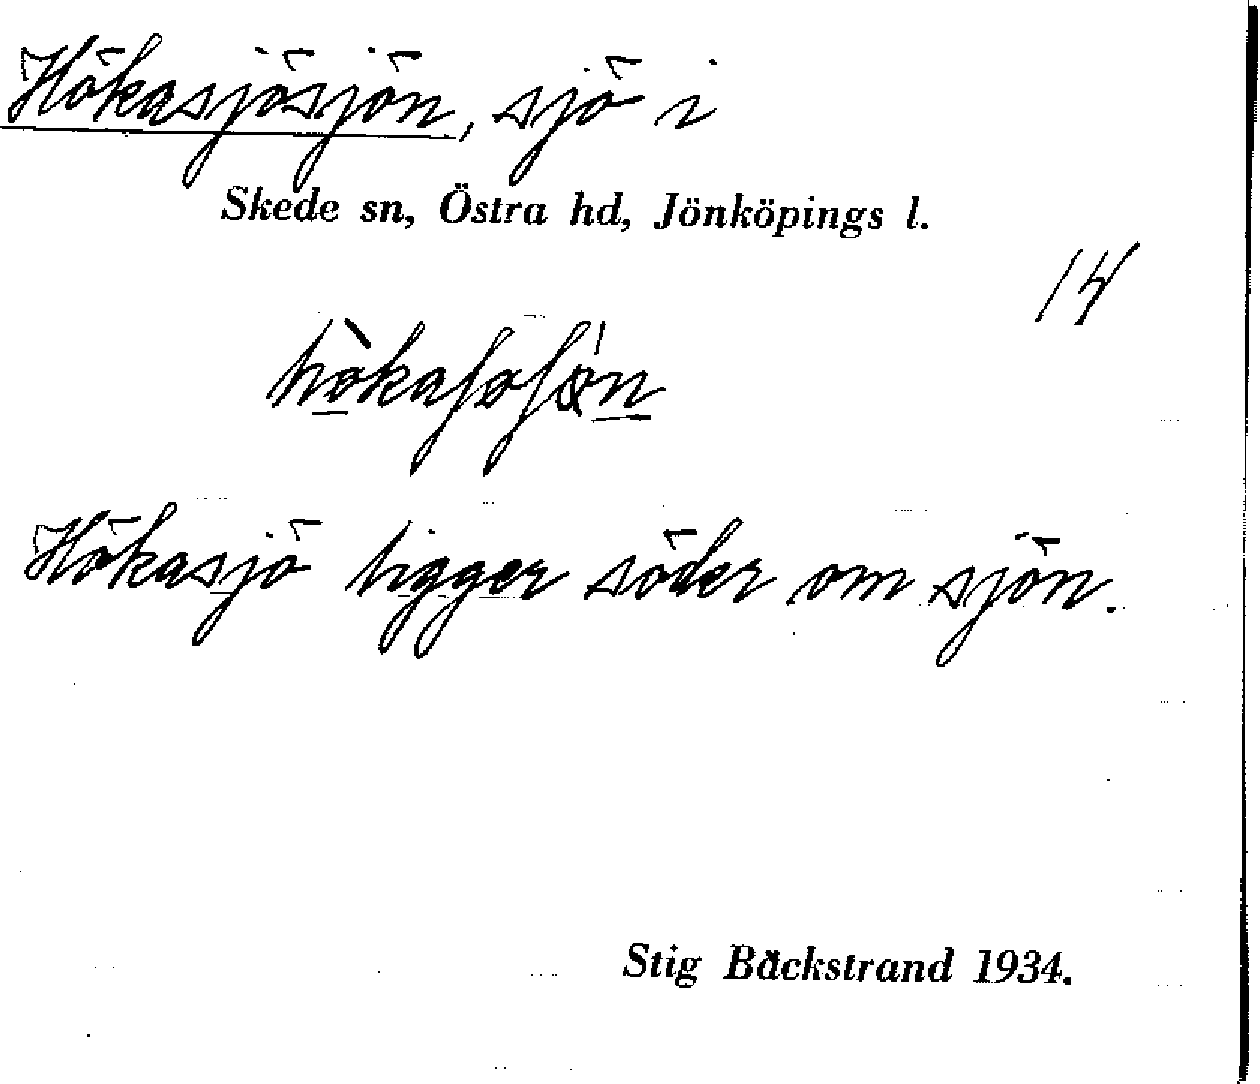 Hökasjösjön, sjö i
Skede sn, Östra hd, Jönköpings l.
14
Hökasjö ligger söder om sjön.
Stig Bäckstrand 1934.